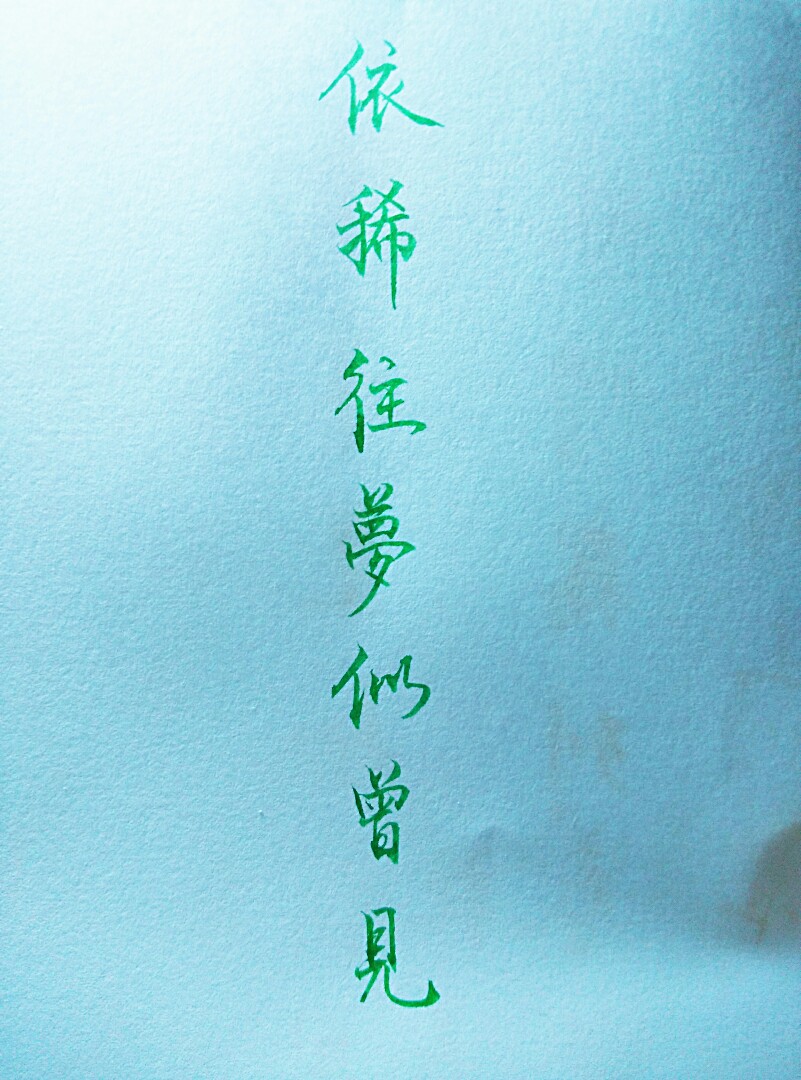 依稀往夢似曾見